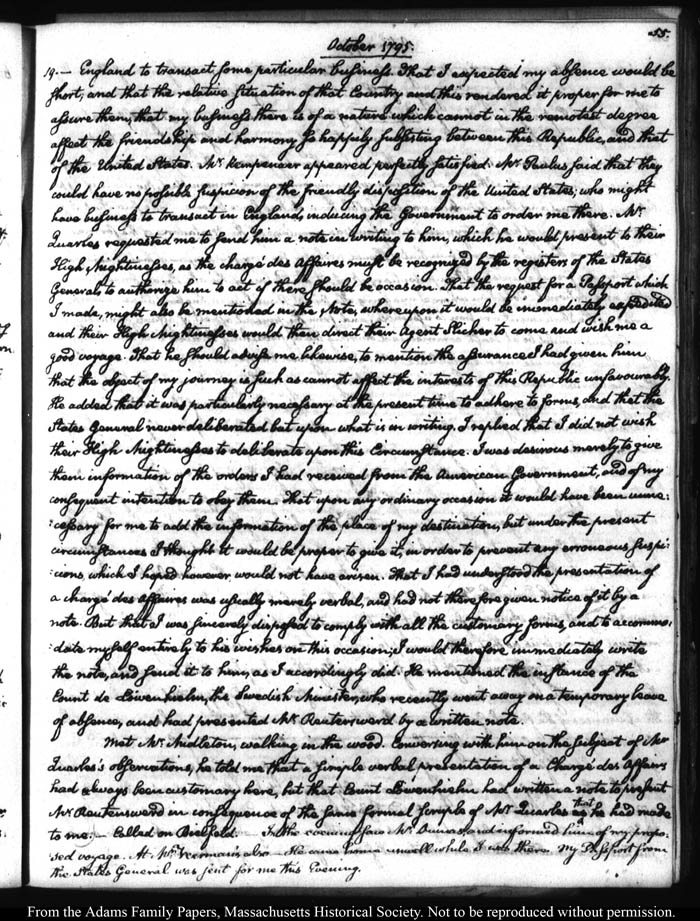 55.
October 1795.
19.— England to transact some particular business. That I expected my absence would be
short, and that the relative situation of that Country and this rendered it proper for me to
assure them, that my business there is of a nature which cannot in the remotest degree
affect the friendship and harmony so happily subsisting between this Republic, and that
of the United States. Mr. Kempenaer appeared perfectly satisfied. Mr. Paulus said that they
could have no possible suspicion of the friendly disposition of the United States, who might
have business to transact in England, inducing the Government to order me there. Mr.
Quarles requested me to send him a note in writing to him, which he would present to their
High Mightinesses, as the chargé des Affaires must be recognized by the registers of the States
General, to authorize him to act if there should be occasion. That the request for a Passport which
I made, might also be mentioned in the Note, whereupon it would be immediately expedited
and their High Mightinesses would then direct their Agent Slicher to come and wish me a
good voyage. That he should advise me likewise, to mention the assurance I had given him
that the object of my journey is such as cannot affect the interests of this Republic unfavourably.
He added that it was particularly necessary at the present time to adhere to forms, and that the
States General never deliberated but upon what is in writing. I replied that I did not wish
their High Mightinesses to deliberate upon this Circumstance. I was desirous merely, to give
them information of the orders I had received from the American Government, and of my
consequent intention to obey them. That upon any ordinary occasion it would have been unne:
:cessary for me to add the information of the place of my destination, but under the present
circumstances I thought it would be proper to give it, in order to prevent any erroneous suspi:
:cions, which I hoped however, would not have arisen. That I had understood the presentation of
a chargé des Affaires was usually merely verbal, and had not therefore given notice of it by a
note. But that I was sincerely disposed to comply with all the customary forms, and to accommo:
:date myself entirely to his wishes on this occasion; I would therefore immediately write
the note, and send it to him, as I accordingly did. He mentioned the instance of the
Count de Löwenhielm, the Swedish Minister, who recently went away on a temporary leave
of absence, and had presented Mr. Reuterswerd by a written note.
Met Mr. Middleton, walking in the wood. Conversing with him on the subject of Mr
Quarles's observations, he told me that a simple verbal presentation of a Chargé des Affaires
had always been customary here, but that Count Löwenhielm had written a note to present
Mr. Reuterswerd in consequence of the same formal scruple of Mr. Quarles that he had made
to me.— Called on Bielfeld.— In the evening saw Mr. Dumas, and informed him of my propo:
sed voyage. At Mr. Veerman's also— He came home unwell while I was there. My Passport from
the States General was sent for me this Evening.
From the Adams Family Papers, Massachusetts Historical Society. Not to be reproduced without permission.